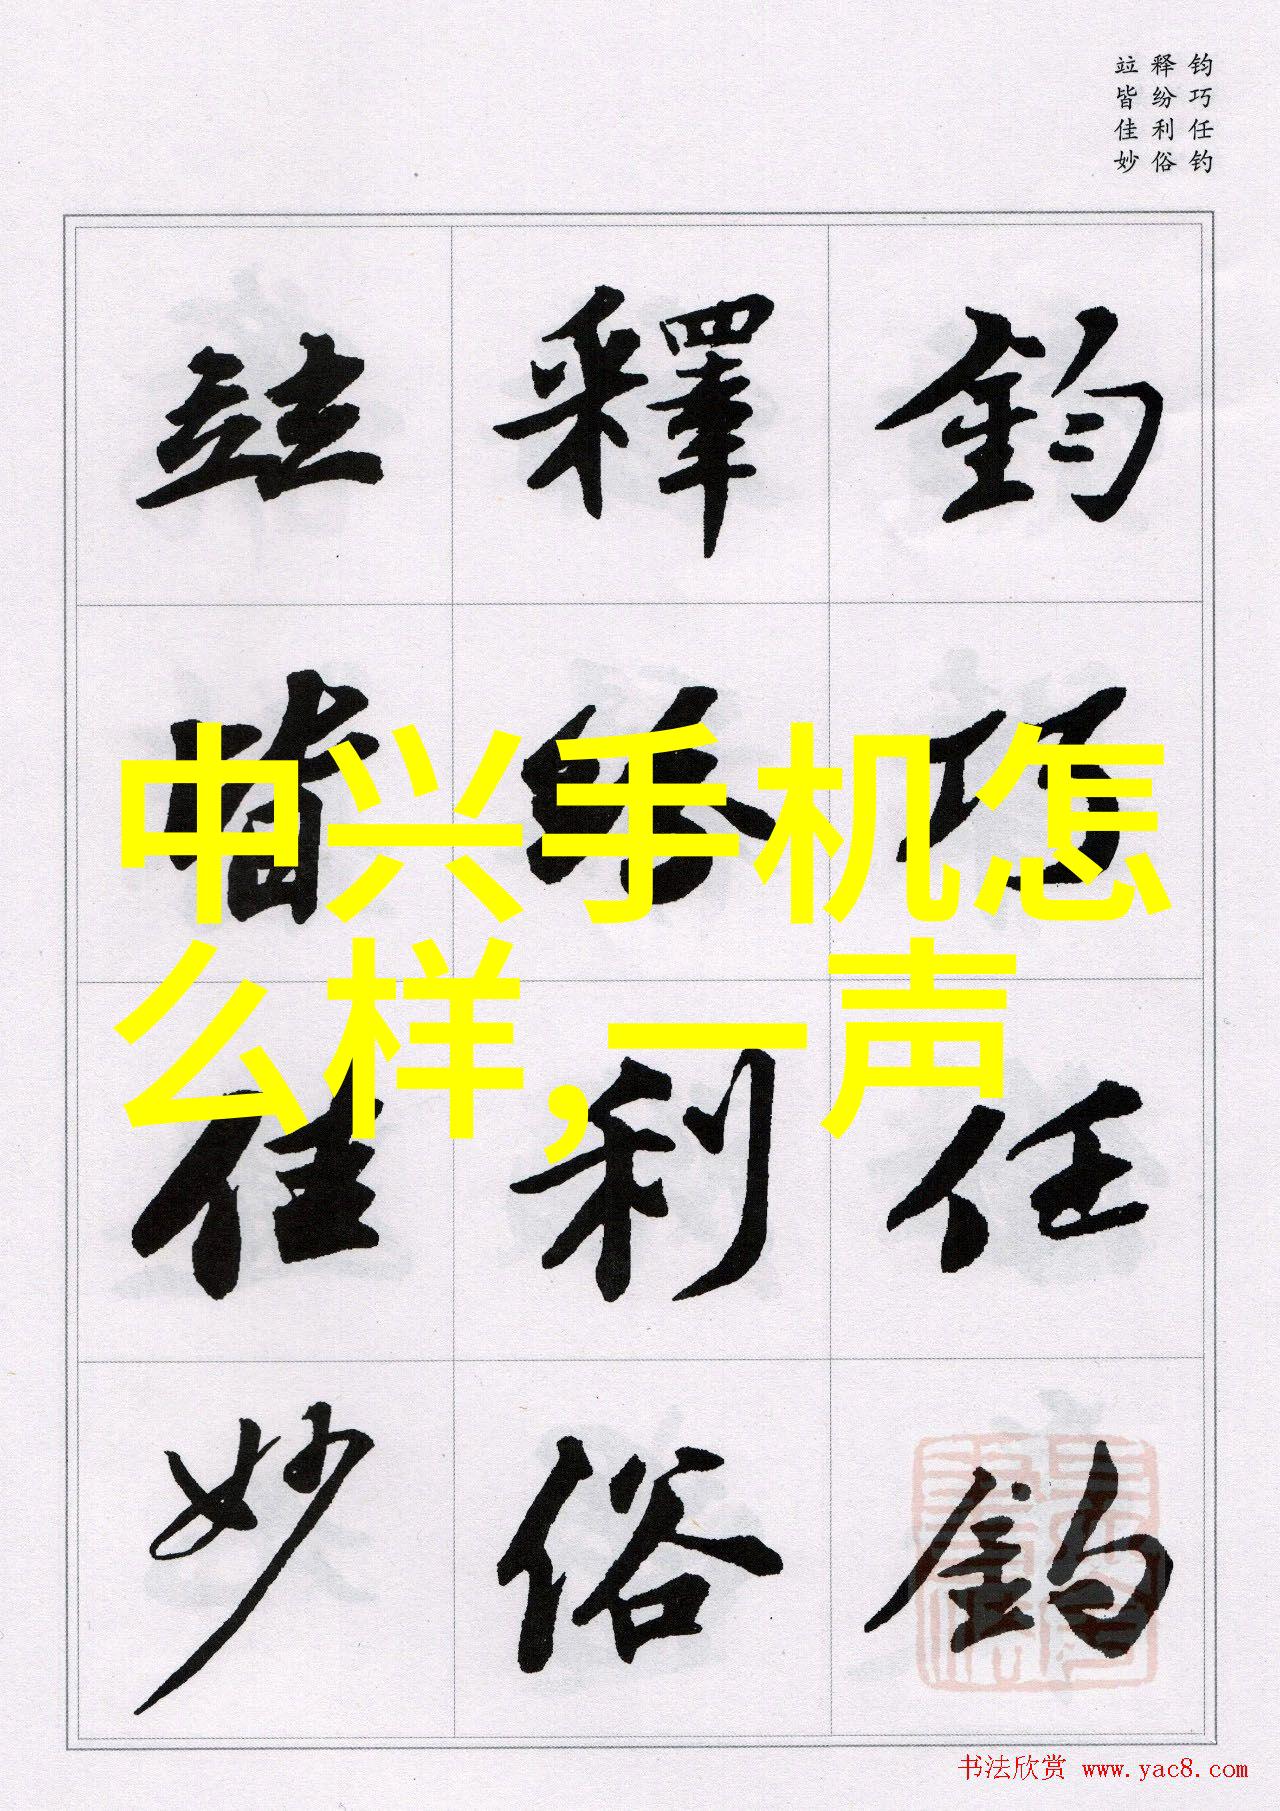 钧巧任钓
释纷利俗
竝皆佳妙
鈞巧任釣
釋紛利俗
竝皆佳妙
中兴手机怎
么样,一声
书法欣赏 www.yac8.com